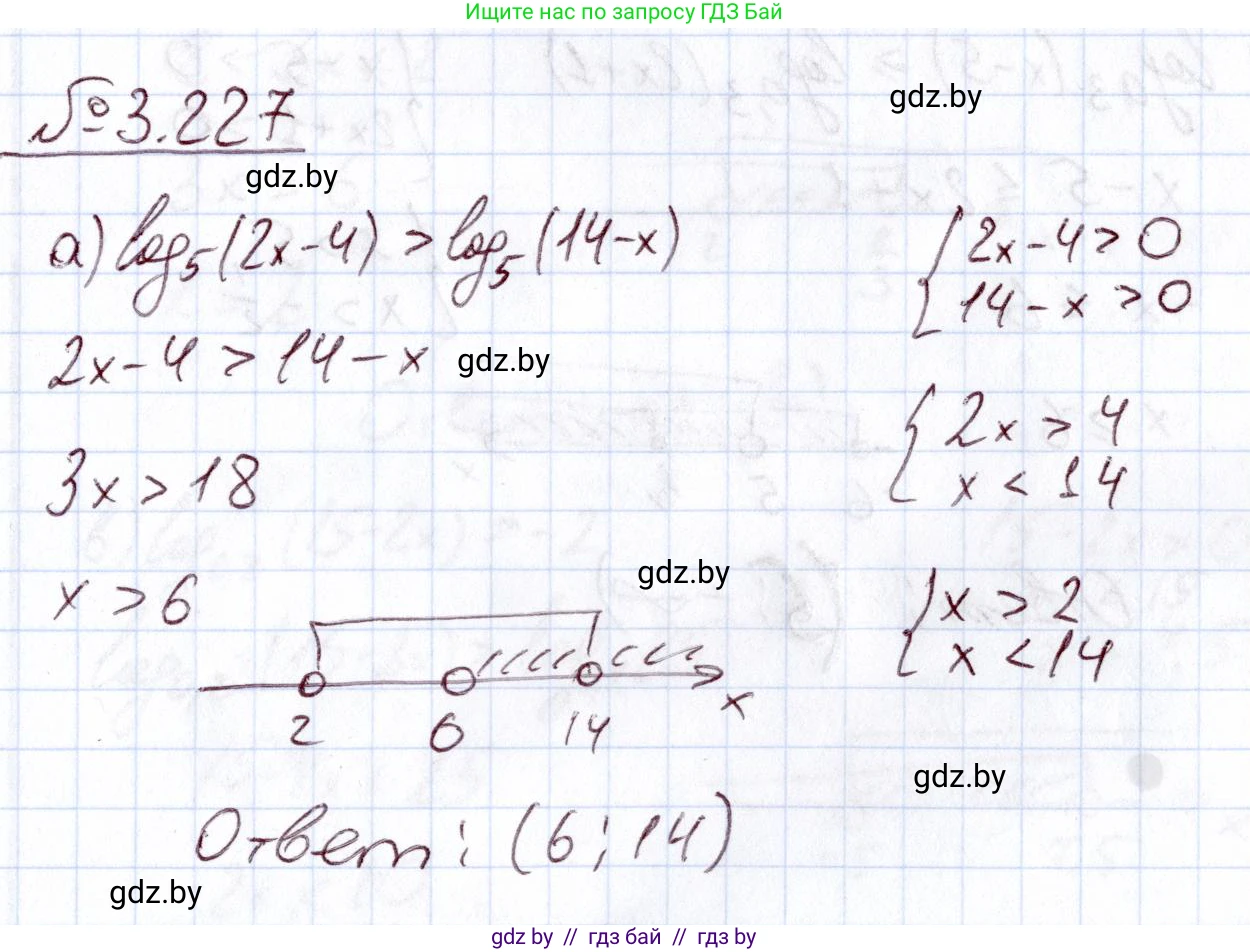 Ищите нас по запросу ГДЗ Бай
gdz.by
№3.227
gdz.by
а) log₅(2x-4) > log₅(14-x)
{ 2x-4 > 0
14-x > 0
2x-4 > 14-x
gdz.by
{ 2x > 4
x < 14
3x > 18
gdz.by
x > 6
{ x > 2
x < 14
2 6 14 x
gdz.by
Ответ: (6; 14)
gdz.by
gdz by // гдз бай // гдз by